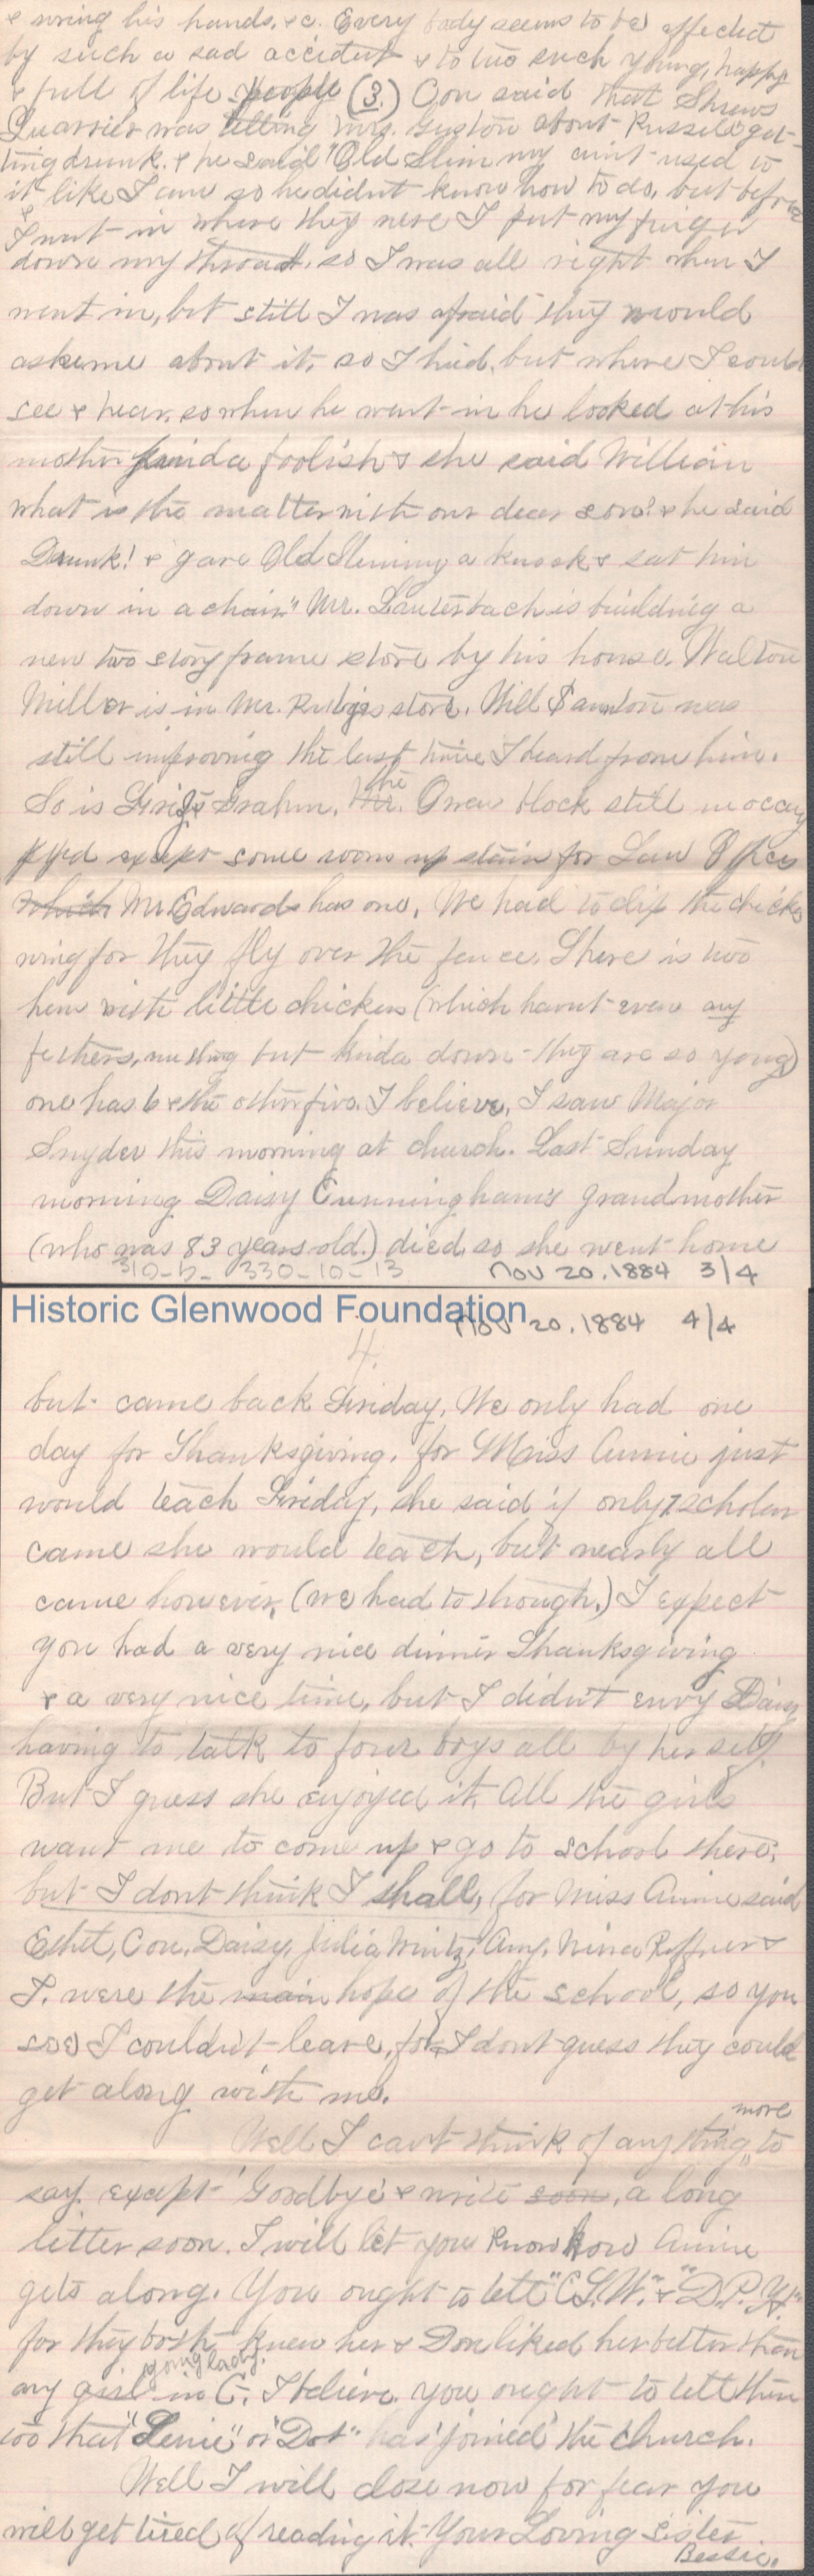 & wring his hands, &c. Every body seems to be affected
by such a sad accident & to two such young, happy
& full of life people (3.) Con said that Shrews
Quarrier was telling Mrs. about Russell get-
ting drunk. & he said "Old Slimmy aint used to
it like I am so he didnt know how to do, but before
I went in where they were I put my finger
down my throat, so I was all right when I
went in, but still I was afraid they would
aske me about it, so I hid, but where I could
see & hear, so when he went in he looked at his
mother kinda foolish & she said William
what is the matter with our dear son? & he said
Drunk! & gave Old Slimmy a knock & sat him
down in a chair." Mr. Lauterbach is building a
new two story frame store by his house. Walton
Miller is in Mr. store. Will was
still improving the last time I heard from him.
So is Graham. the Orea block still unoccu
pyed except some rooms up stairs for Law Offices
which Mr Edwards has one, We had to clip the chicks
wing for they fly over the fence. There is two
hens with little chickens (which havnt even any
fethers, nothing but kinda down - they are so young)
one has 6 & the other five. I believe, I saw Major
Snyder this morning at church. Last Sunday
morning Daisy Cunningham's grandmother
(who was 83 years old.) died so she went home
310-5- 330-10-13 Nov 20. 1884 3/4
Historic Glenwood Foundation
Nov 20. 1884 4/4
4.
but came back Friday, We only had one
day for Thanksgiving. for Miss Annie just
would teach Friday, she said if only 7 scholars
came she would teach, but nearly all
came however, (we had to though.) I expect
you had a very nice dinner Thanksgiving
& a very nice time, but I didn't envy Daisy
having to talk to four boys all by herself.
But I guess she enjoyed it. All the girls
want me to come up & go to school there,
but I dont think I shall, for Miss Annie said
Ethel, Con, Daisy, Julia Amy, Nina Ruffner &
I. were the main hope of the school, so you
see I couldn't leave, for I dont guess they could
get along with me.
Well I can't think of anything more to
say except "Goodbye" & write soon, a long
letter soon. I will let you know how Annie
gets along. You ought to tell "C.S.W." & "D.P.Y."
for they both knew her & Don liked her better than
any girl young lady. in C. I believe. You ought to tell them
too that "Lenie" or "Dot" has "joined" the church.
Well I will close now for fear you
will get tired of reading it. Your Loving sister
Bessie.